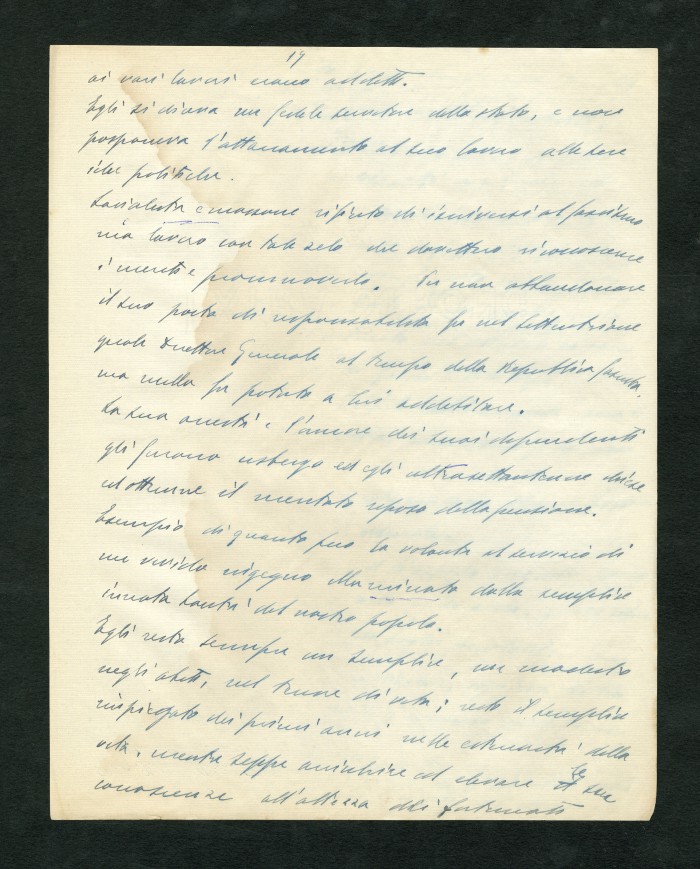 19
ai vari lavori erano addetti.
Egli si diceva un fedele servitore dello stato, e non
posponeva l'attaccamento al suo lavoro alle sue
idee politiche.
Socialista e massone rifiutò di iscriversi al fascismo
ma lavorò con tale zelo che dovettero riconoscerne
i meriti e promuoverlo. Per non abbandonare
il suo posto di responsabilità fu nel settentrione
quale Direttore Generale al tempo della Repubblica fascista,
ma nulla fu potuto a lui addebitare.
La sua onestà e l'amore dei suoi dipendenti
gli furono usbergo ed egli ultrasettantenne chiese
ed ottenne il meritato riposo della pensione.
Esempio di quanto può la volontà al servizio di
un vivido ingegno illuminato dalla semplice
innata bontà del nostro popolo.
Egli resta sempre un semplice, un modesto
negli abiti, nel tenore di vita; resta il semplice
impiegato dei primi anni nelle esteriorità della
vita, mentre seppe arricchire ed elevare le sue
conoscenze all'altezza dei fortunati